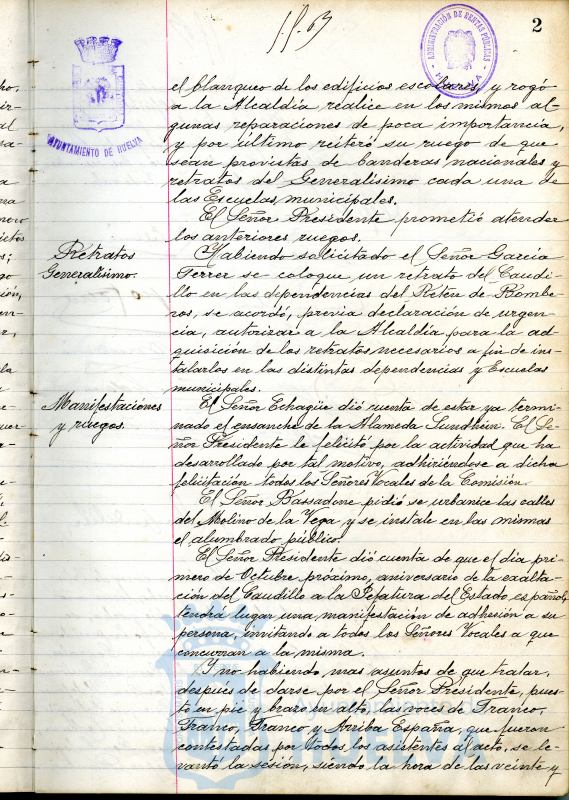 2
ADMINISTRACIÓN DE RENTAS PÚBLICAS
HUELVA
AYUNTAMIENTO DE HUELVA
el blanqueo de los edificios escolares, y rogó
a la Alcaldía realice en los mismos al-
gunas reparaciones de poca importancia,
y por último reiteró su ruego de que
sean provistas de banderas nacionales y
retratos del Generalísimo cada una de
las Escuelas municipales.
El Señor Presidente prometió atender
los anteriores ruegos.
Retratos
Generalísimo.
Habiendo solicitado el Señor García
Ferrer se coloque un retrato del Caudi-
llo en las dependencias del Reten de Bombe-
ros, se acordó, previa declaración de urgen-
cia, autorizar a la Alcaldía para la ad-
quisición de los retratos necesarios a fin de ins-
talarlos en las distintas dependencias y Escuelas
municipales.
Manifestaciones
y ruegos.
El Señor Echagüe dió cuenta de estar ya termi-
nado el ensanche de la Alameda Sundhein. El Se-
ñor Presidente le felicitó por la actividad que ha
desarrollado por tal motivo, adhiriendose a dicha
felicitación todos los Señores Vocales de la Comisión.
El Señor Bassadone pidió se urbanice las calles
del Molino de la Vega y se instale en las mismas
el alumbrado público.
El Señor Presidente dió cuenta de que el día pri-
mero de Octubre próximo, aniversario de la exalta-
ción del Caudillo a la Jefatura del Estado español,
tendrá lugar una manifestación de adhesión a su
persona, invitando a todos los Señores Vocales a que
concurran a la misma.
Y no habiendo mas asuntos de que tratar,
después de darse por el Señor Presidente, pues-
to en pié y brazo en alto, las voces de Franco,
Franco, Franco y Arriba España, que fueron
contestadas por todos los asistentes al acto, se le-
vantó la sesión, siendo la hora de las veinte y